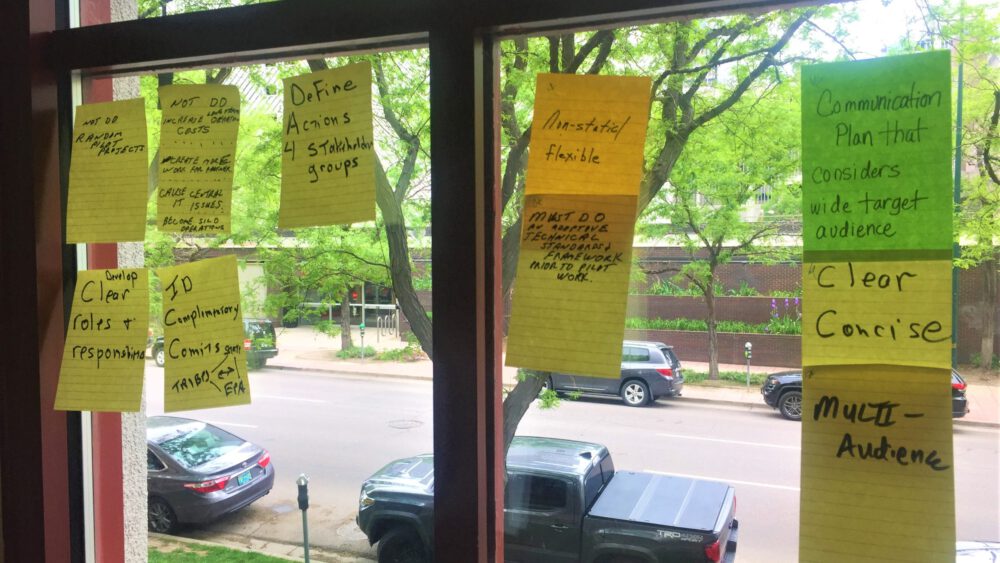 NOT DO
RANDOM
PILOT
PROJECTS
NOT DO
INCREASE LONG TERM
OPERATION
COSTS
CREATE MORE
WORK FOR PARTNER
CAUSE CENTRAL
IT ISSUES.
BECOME SILO
OPERATIONS
DeFine
Actions
4 STakeholder
groups
Develop
Clear
roles +
responsibilities
ID
Complimentary
Comits
TRIBES
EPA
Non-static/
flexible
MUST DO
AN ADAPTIVE
TECHNICAL
STANDARDS
FRAMEWORK
PRIOR TO PILOT
WORK.
Communication
Plan that
considers
wide target
audience
Clear
Concise
MULTI-
Audience
TRD